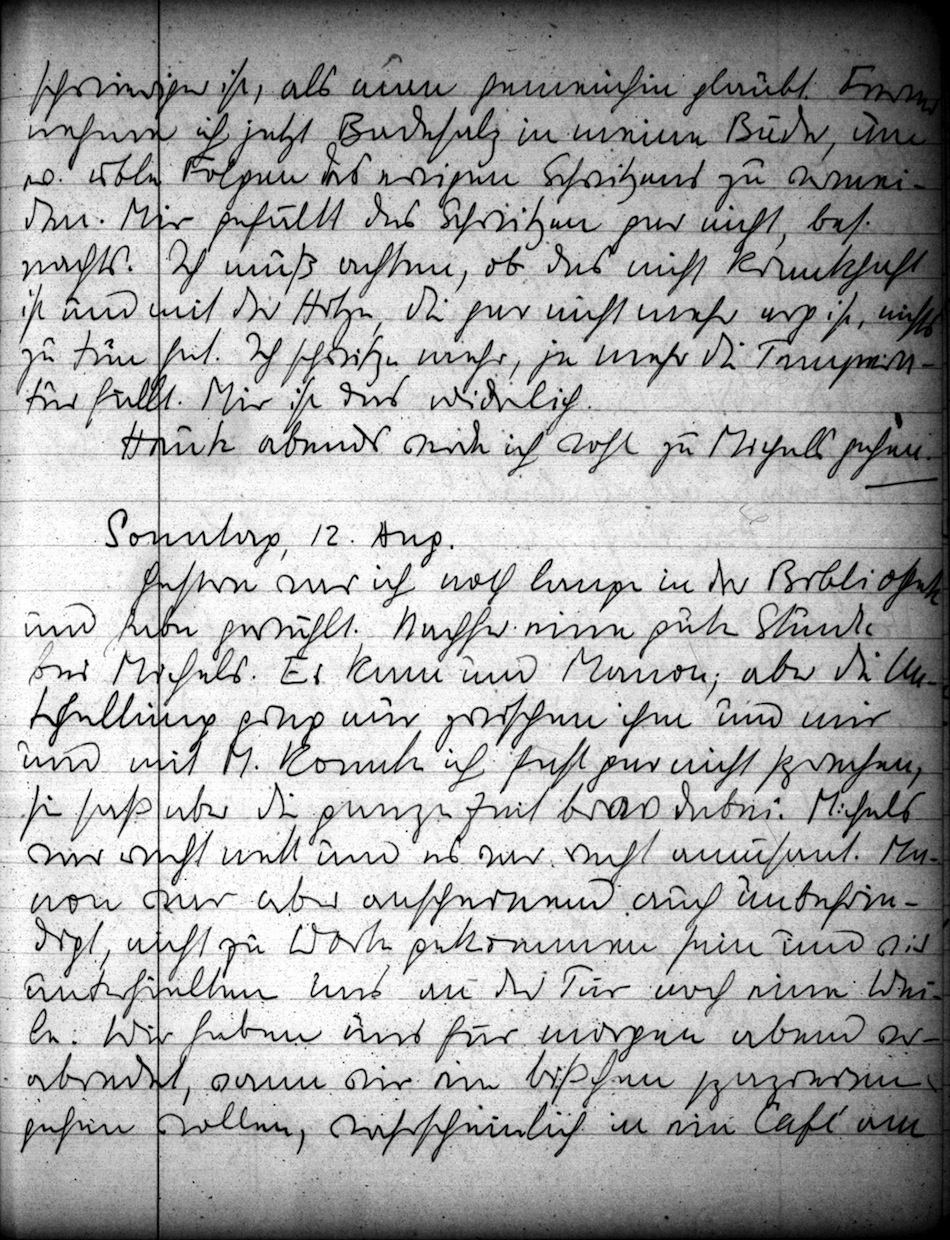 schwieriger ist, als man gemeinhin glaubt. Ferner
nehme ich jetzt Badesalz in meine Bäder, um
ev. üble Folgen des ewigen Schwitzens zu vermei-
den. Mir gefällt das Schwitzen gar nicht, bes.
nachts. Ich muß achten, ob das nicht krankhaft
ist und mit der Hitze, die gar nicht mehr arg ist, nichts
zu tun hat. Ich schwitze mehr, je mehr die Tempera-
tur fällt. Mir ist das widerlich.
Heute abend werde ich wohl zu Michels gehen.
Sonntag, 12. Aug.
Gestern war ich noch lange in der Bibliothek
und habe gewühlt. Nachher eine gute Stunde
bei Michels. Es kam und Manon; aber die Un-
terhaltung ging nur zwischen ihm und mir
und mit M. konnte ich fast gar nicht sprechen,
sie saß aber die ganze Zeit brav dabei. Michels
war recht nett und es war recht amüsant. Ma-
non war aber anscheinend auch unbefrie-
digt, nicht zu Worte gekommen sein und wir
unterhielten uns an der Tür noch eine Wei-
le. Wir haben uns für morgen abend ver-
abredet, wann wir ein bißchen spazieren
gehen wollen, wahrscheinlich in ein Café am